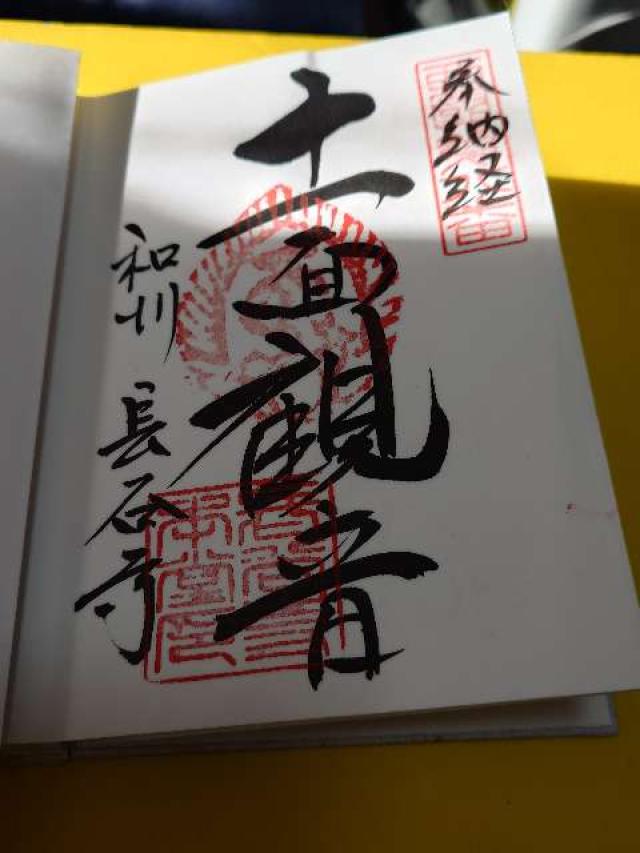 奉納経
十一面
観音
和州 長谷寺